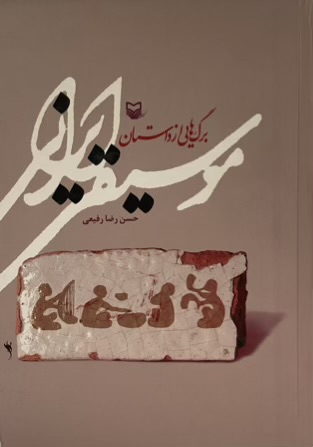 برگ‌هایی از داستان
موسیقی ایرانی
حسن رضا رفیعی